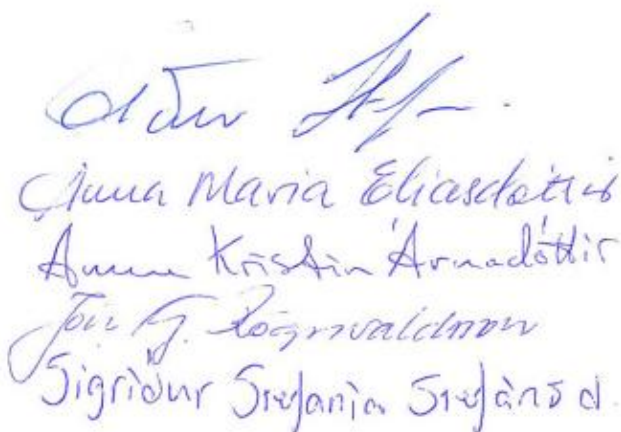 Anna Maria Elíasdóttir
Anna Kristín Árnadóttir
Jón G. Rögnvaldsson
Sigríður Stefanía Stefánsd.